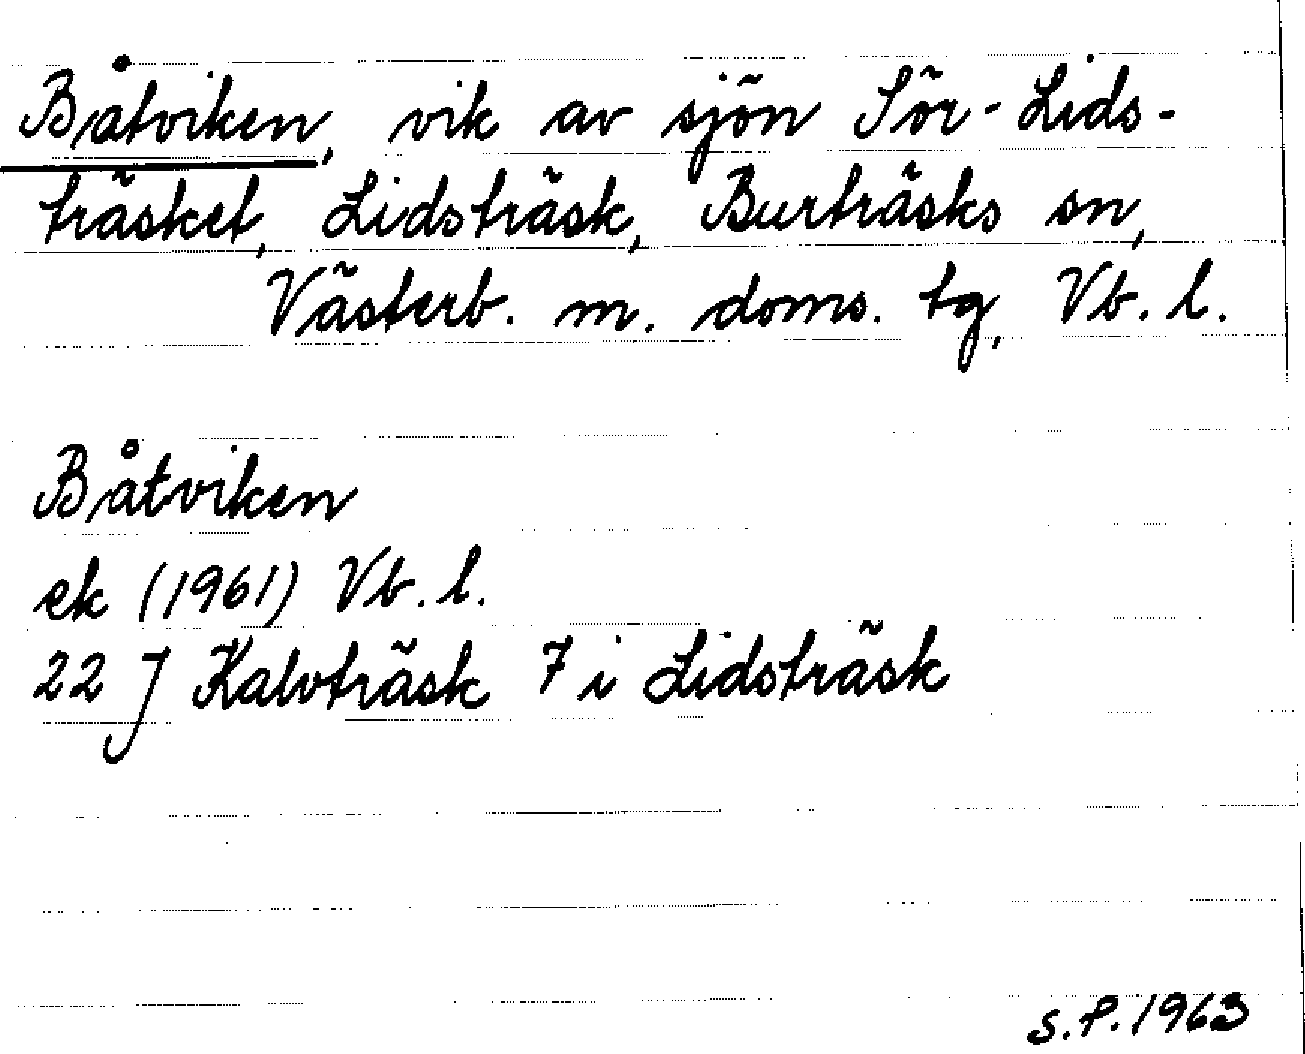 Båtviken, vik av sjön Sör-Lids-
träsket, Lidsträsk, Burträsks sn,
Västerb. m. doms. tg, Vb. l.
Båtviken
ek (1961) Vb. l.
22 J Kalvträsk 7 i Lidsträsk
S.P. 1963